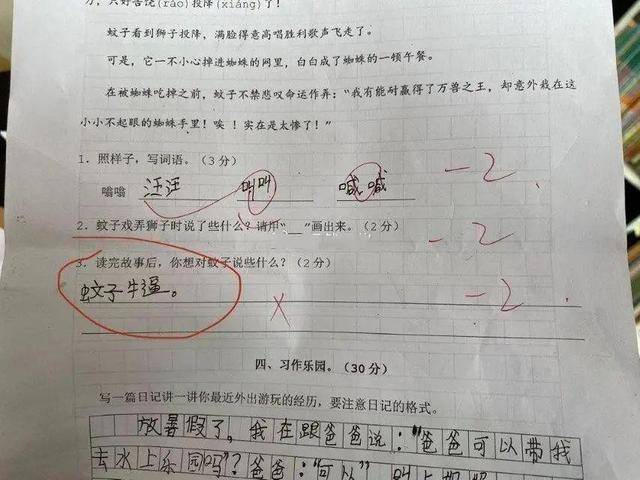 方，只好告饶(ráo)投降(xiáng)了！
蚊子看到狮子投降，满脸得意高唱胜利歌声飞走了。
可是，它一不小心掉进蜘蛛的网里，白白成了蜘蛛的一顿午餐。
在被蜘蛛吃掉之前，蚊子不禁悲叹命运作弄：“我有能耐赢得了万兽之王，却意外栽在这
小小不起眼的蜘蛛手里！唉！实在是太惨了！”
1. 照样子，写词语。（3分）
嗡嗡 汪汪 叫叫 喊喊
-2
2. 蚊子戏弄狮子时说了些什么？请用“__”画出来。（2分）
-2
3. 读完故事后，你想对蚊子说些什么？（2分）
蚊子牛逼。
× -2
四、习作乐园。（30分）
写一篇日记讲一讲你最近外出游玩的经历，要注意日记的格式。
放暑假了，我在跟爸爸说：“爸爸可以带我
去水上乐园吗”？爸爸：“可以”